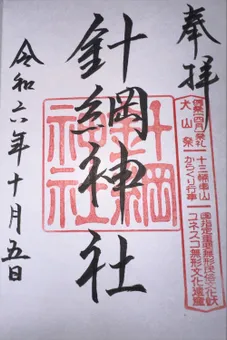 奉拝
犬山祭
十三輌車山
からくり行事
国指定重要無形民俗文化財
ユネスコ無形文化遺産
針綱神社
針綱神社
令和六年十月五日